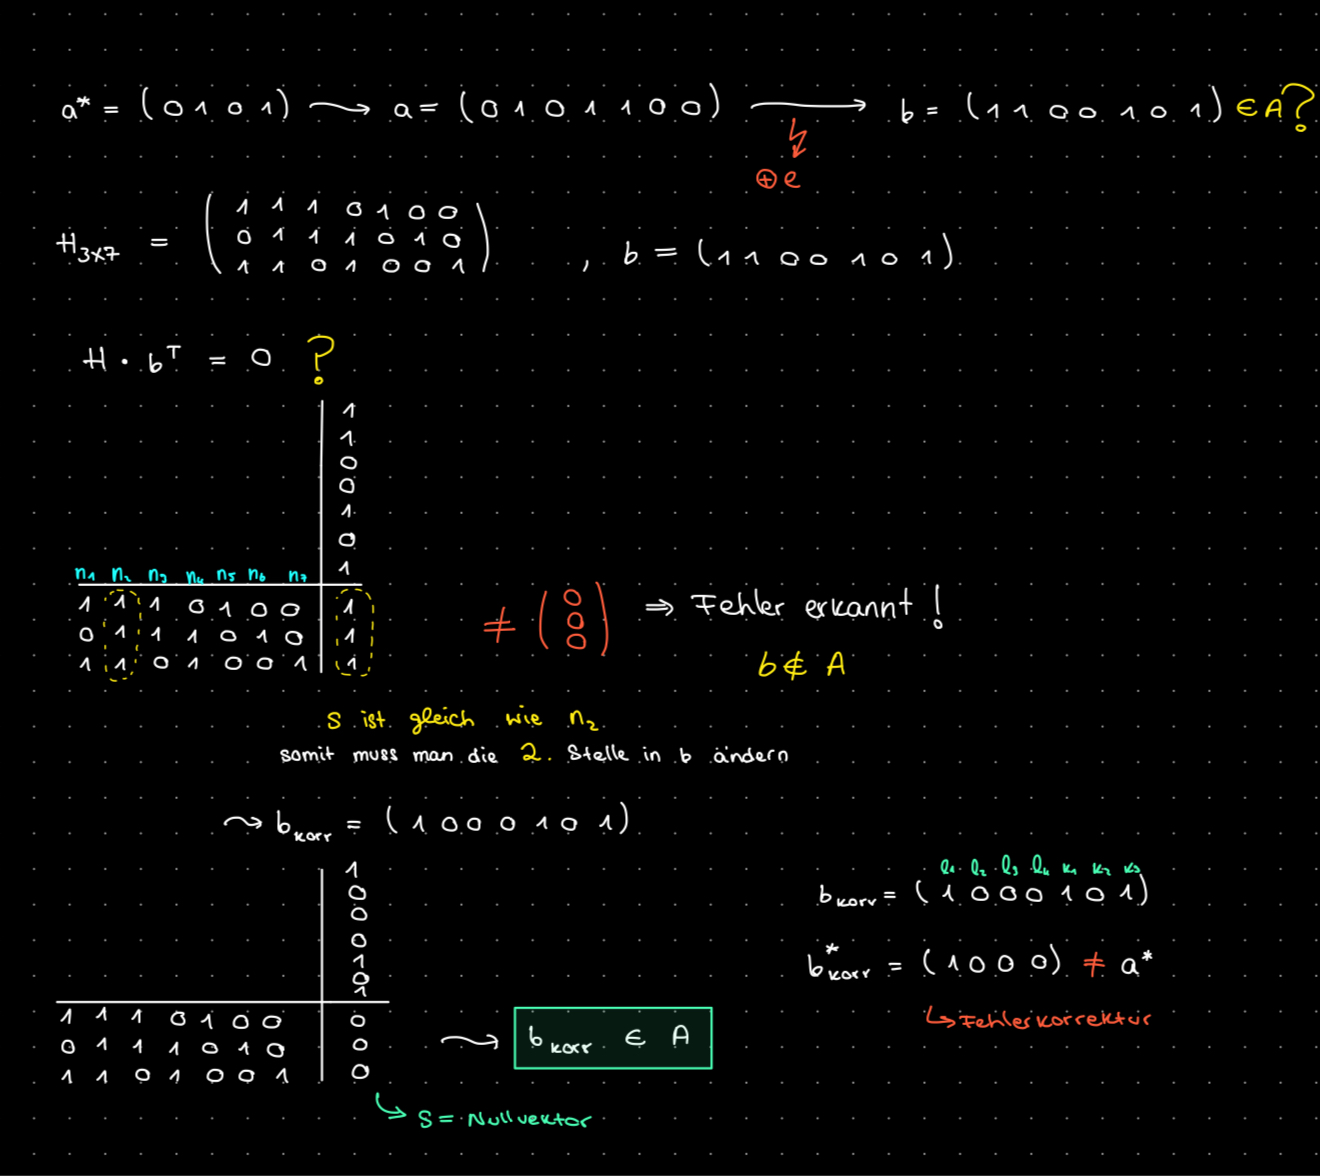 a* = (0 1 0 1) ⟶ a = (0 1 0 1 1 0 0) ⟶ b = (1 1 0 0 1 0 1) ∈ A?
⊕ e
H₃ₓ₇ = ( 1 1 1 0 1 0 0
0 1 1 1 0 1 0
1 1 0 1 0 0 1 ) , b = (1 1 0 0 1 0 1)
H · bᵀ = 0 ?
1
1
0
0
1
0
1
n₁ n₂ n₃ n₄ n₅ n₆ n₇
1 1 1 0 1 0 0 | 1
0 1 1 1 0 1 0 | 1
1 1 0 1 0 0 1 | 1
≠ ( 0
0
0 ) ⇒ Fehler erkannt!
b ∉ A
S ist gleich wie n₂
somit muss man die 2. Stelle in b ändern
⤳ b_korr = (1 0 0 0 1 0 1)
1
0
0
0
1
0
1
1 1 1 0 1 0 0 | 0
0 1 1 1 0 1 0 | 0
1 1 0 1 0 0 1 | 0
⟶ b_korr ∈ A
↳ S = Nullvektor
l₁ l₂ l₃ l₄ k₁ k₂ k₃
b_korr = (1 0 0 0 1 0 1)
b*_korr = (1 0 0 0) ≠ a*
↳ Fehlerkorrektur